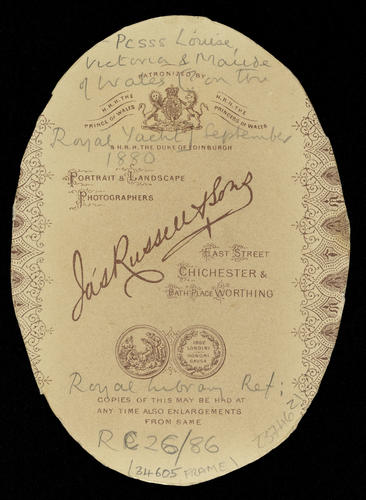 Pcsss Louise,
Victoria & Maude
of Wales on the
PATRONIZED BY
H.R.H. THE PRINCE OF WALES
H.R.H. THE PRINCESS OF WALES
Royal Yacht September
& H.R.H. THE DUKE OF EDINBURGH
1880
PORTRAIT & LANDSCAPE
PHOTOGRAPHERS
Jas Russell & Sons
EAST STREET
CHICHESTER &
BATH PLACE WORTHING
1862
LONDINI
HONORIS
CAUSA
Royal Library Ref:
COPIES OF THIS MAY BE HAD AT
ANY TIME ALSO ENLARGEMENTS
FROM SAME
RC 26/86
(34605 FRAME)